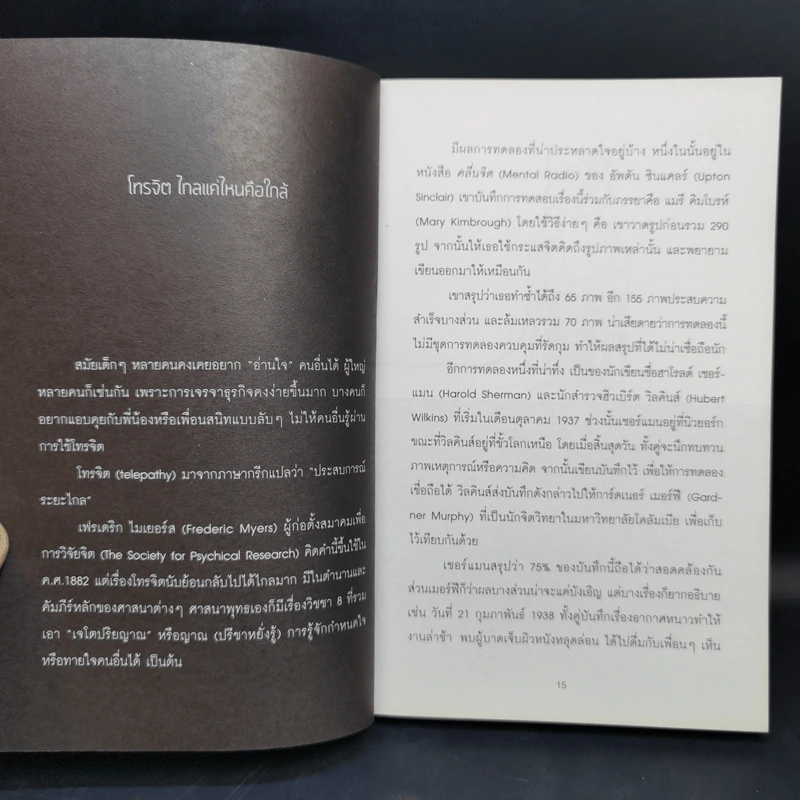 โทรจิต ไกลแค่ไหนคือใกล้
สมัยเด็กๆ หลายคนคงเคยอยาก "อ่านใจ" คนอื่นได้ ผู้ใหญ่
หลายคนก็เช่นกัน เพราะการเจรจาธุรกิจคงง่ายขึ้นมาก บางคนก็
อยากแอบคุยกับพี่น้องหรือเพื่อนสนิทแบบลับๆ ไม่ให้คนอื่นรู้ผ่าน
การใช้โทรจิต
โทรจิต (telepathy) มาจากภาษากรีกแปลว่า "ประสบการณ์
ระยะไกล"
เฟรเดริก ไมเยอร์ส (Frederic Myers) ผู้ก่อตั้งสมาคมเพื่อ
การวิจัยจิต (The Society for Psychical Research) คิดคำนี้ขึ้นใช้ใน
ค.ศ.1882 แต่เรื่องโทรจิตนับย้อนกลับไปได้ไกลมาก มีในตำนานและ
คัมภีร์หลักของศาสนาต่างๆ ศาสนาพุทธเองก็มีเรื่องวิชชา 8 ที่รวม
เอา "เจโตปริยญาณ" หรือญาณ (ปรีชาหยั่งรู้) การรู้จักกำหนดใจ
หรือทายใจคนอื่นได้ เป็นต้น
มีผลการทดลองที่น่าประหลาดใจอยู่บ้าง หนึ่งในนั้นอยู่ใน
หนังสือ คลื่นจิต (Mental Radio) ของ อัพตัน ซินแคลร์ (Upton
Sinclair) เขาบันทึกการทดสอบเรื่องนี้ร่วมกับภรรยาคือ แมรี คิมโบรห์
(Mary Kimbrough) โดยใช้วิธีง่ายๆ คือ เขาวาดรูปก่อนรวม 290
รูป จากนั้นให้เธอใช้กระแสจิตคิดถึงรูปภาพเหล่านั้น และพยายาม
เขียนออกมาให้เหมือนกัน
เขาสรุปว่าเธอทำซ้ำได้ถึง 65 ภาพ อีก 155 ภาพประสบความ
สำเร็จบางส่วน และล้มเหลวรวม 70 ภาพ น่าเสียดายว่าการทดลองนี้
ไม่มีชุดการทดลองควบคุมที่รัดกุม ทำให้ผลสรุปที่ได้ไม่น่าเชื่อถือนัก
อีกการทดลองหนึ่งที่น่าทึ่ง เป็นของนักเขียนชื่อฮาโรลด์ เชอร์-
แมน (Harold Sherman) และนักสำรวจฮิวเบิร์ต วิลคินส์ (Hubert
Wilkins) ที่เริ่มในเดือนตุลาคม 1937 ช่วงนั้นเชอร์แมนอยู่ที่นิวยอร์ก
ขณะที่วิลคินส์อยู่ที่ขั้วโลกเหนือ โดยเมื่อสิ้นสุดวัน ทั้งคู่จะนึกทบทวน
ภาพเหตุการณ์หรือความคิด จากนั้นเขียนบันทึกไว้ เพื่อให้การทดลอง
เชื่อถือได้ วิลคินส์ส่งบันทึกดังกล่าวไปให้การ์ดเนอร์ เมอร์ฟี (Gard-
ner Murphy) ที่เป็นนักจิตวิทยาในมหาวิทยาลัยโคลัมเบีย เพื่อเก็บ
ไว้เทียบกันด้วย
เชอร์แมนสรุปว่า 75% ของบันทึกนี้ถือได้ว่าสอดคล้องกัน
ส่วนเมอร์ฟีกว่าผลบางส่วนน่าจะแค่บังเอิญ แต่บางเรื่องก็ยากอธิบาย
เช่น วันที่ 21 กุมภาพันธ์ 1938 ทั้งคู่บันทึกเรื่องอากาศหนาวทำให้
งานล่าช้า พบผู้บาดเจ็บผิวหนังหลุดล่อน ได้ไปดื่มกับเพื่อนๆ เห็น
15